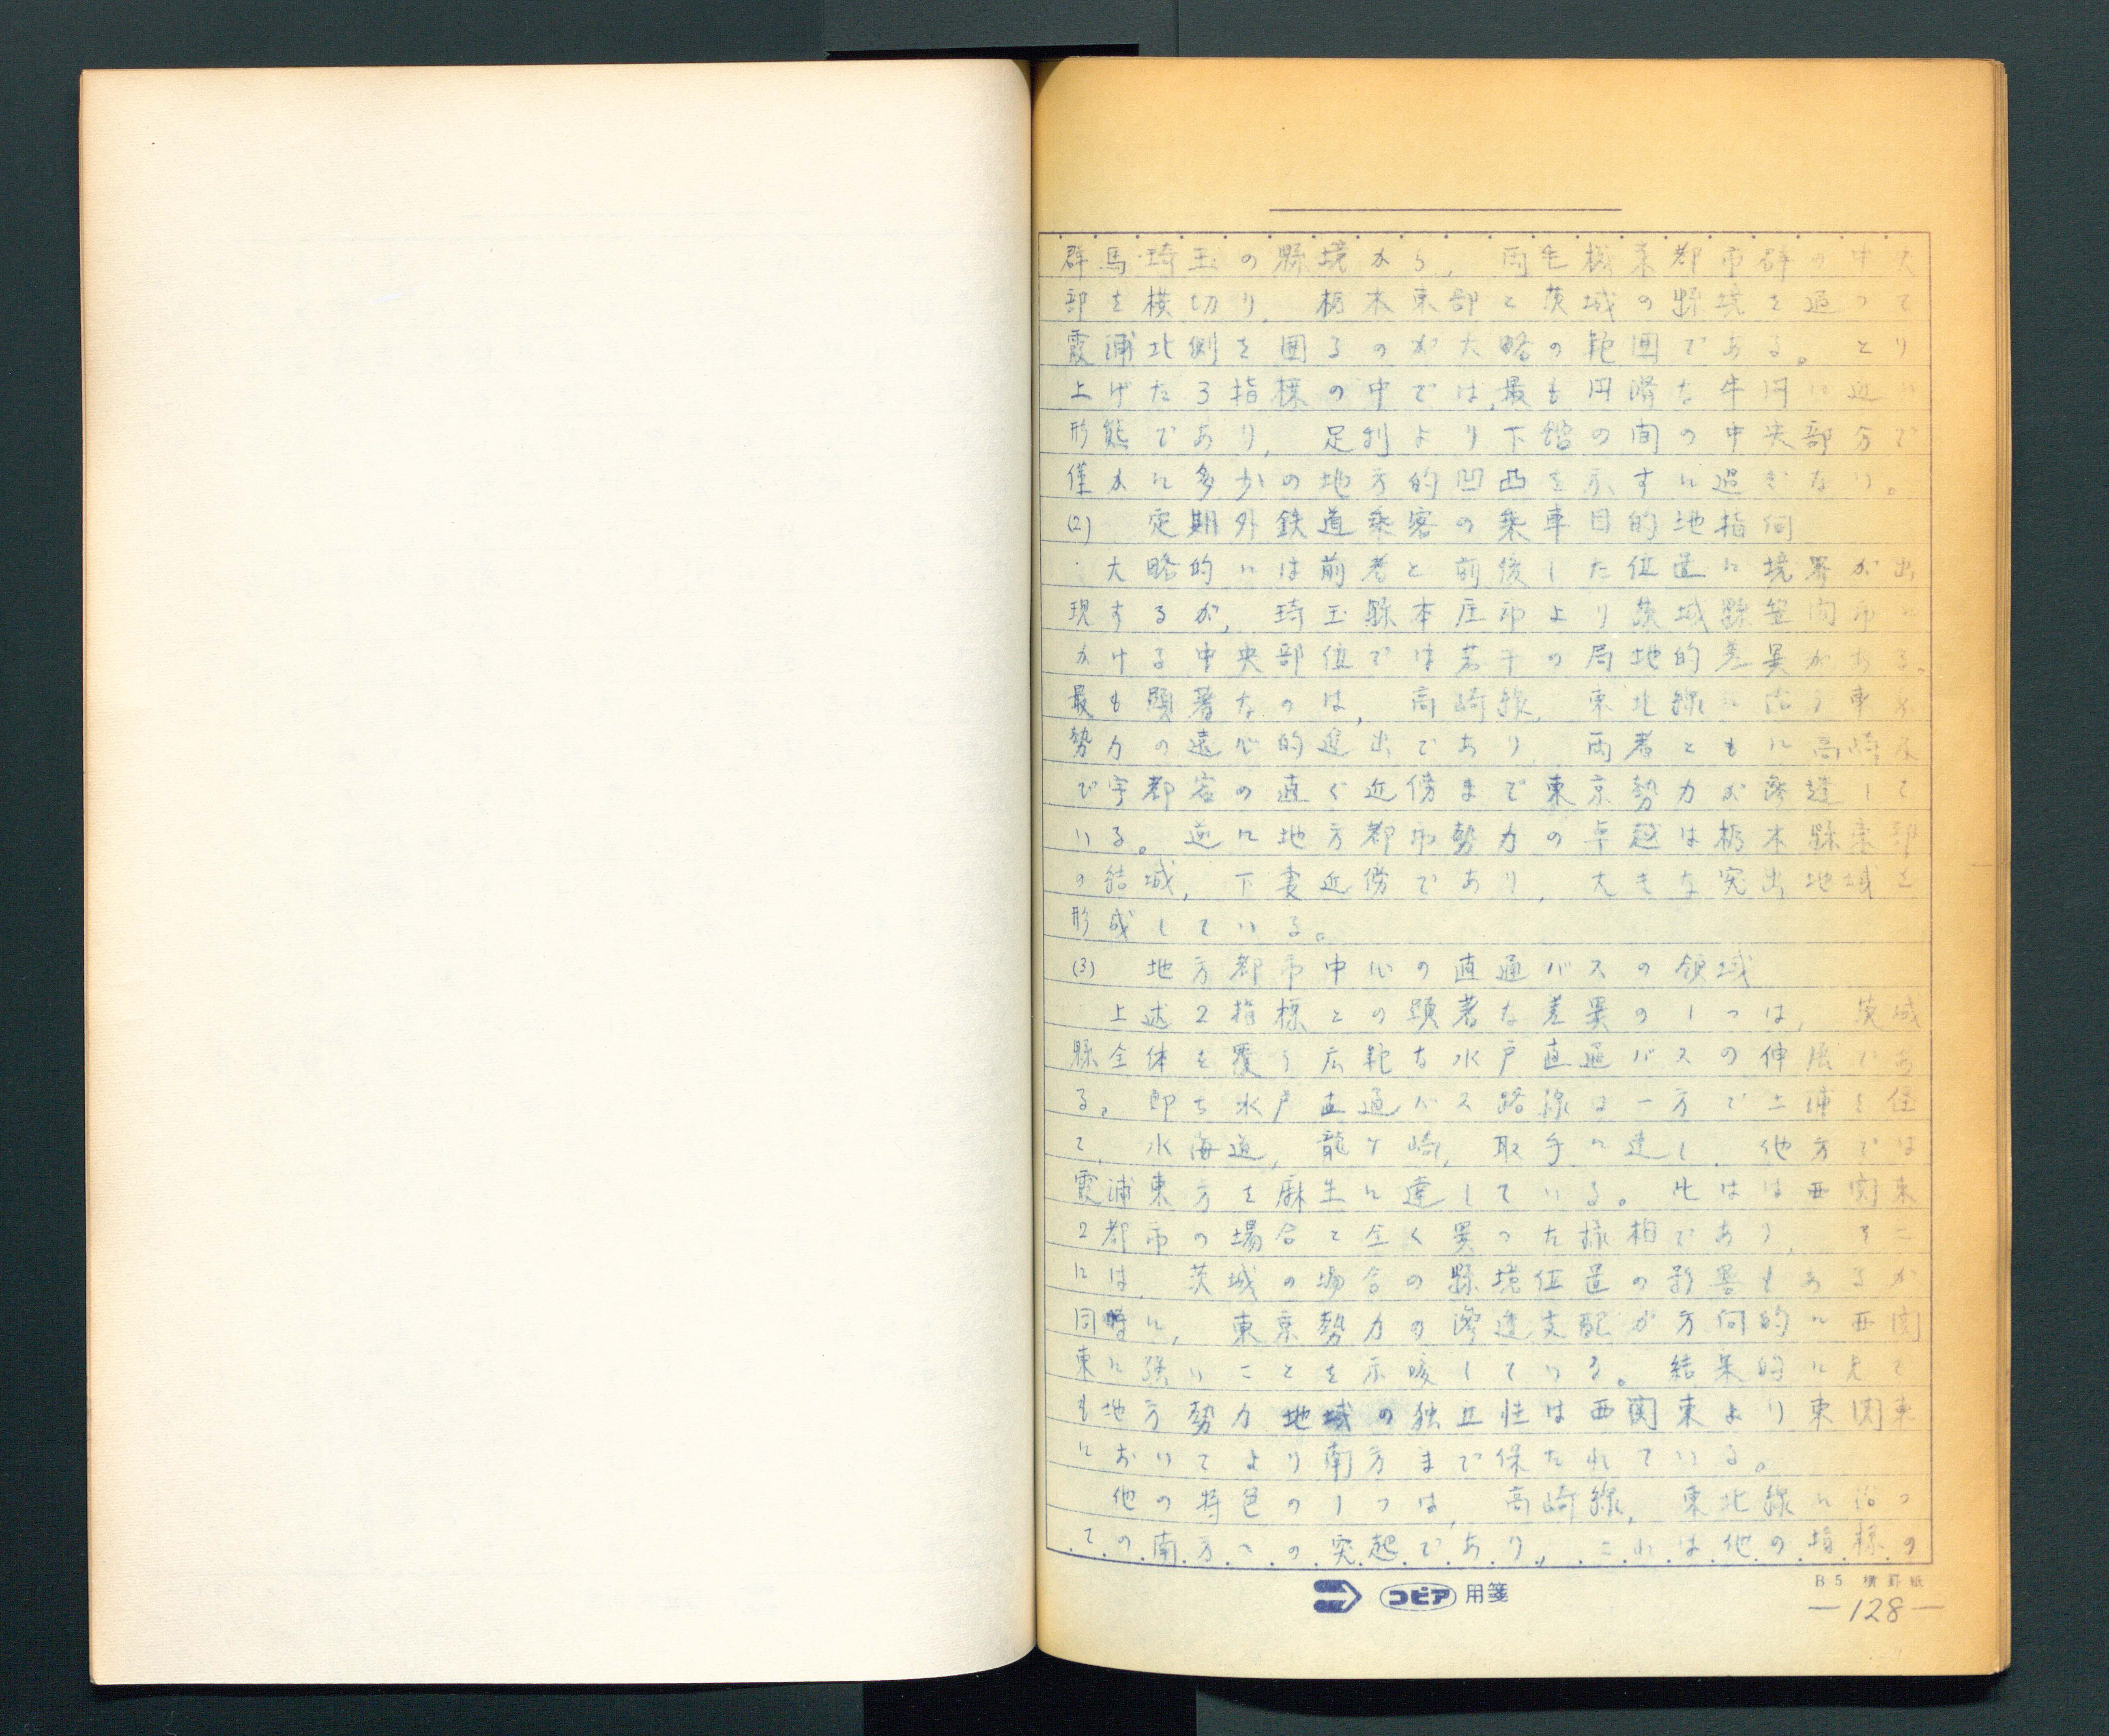 群馬埼玉の縣境から，両毛機業都市群の中央
部を横切り，栃木東部と茨城の縣境を通って
霞浦北側を囲るのが大略の範囲である。とり
上げた3指標の中では，最も円滑な半円に近い
形態であり，足利より下館の間の中央部分で
僅かに多少の地方的凹凸を示すに過ぎない。
(2)　定期外鉄道乗客の乗車目的地指向
大略的には前者と前後した位置に境界が出
現するが，埼玉縣本庄市より茨城縣笠間市に
かける中央部位では若干の局地的差異がある。
最も顕著なのは，高崎線，東北線に沿う東京
勢力の遠心的進出であり，両者ともに高崎及
び宇都宮の直ぐ近傍まで東京勢力が滲透して
いる。逆に地方都市勢力の卓越は栃木縣東部
の結城，下妻近傍であり，大きな突出地域を
形成している。
(3)　地方都市中心の直通バスの領域
上述2指標との顕著な差異の1つは，茨城
縣全体を覆う広範な水戸直通バスの伸展であ
る。即ち水戸直通バス路線は一方で土浦を経
て，水海道，龍ヶ崎，取手に達し，他方では
霞浦東方を麻生に達している。此はは西関東
2都市の場合と全く異った様相であり，そこ
には，茨城の場合の縣境位置の影響もあるが
同時に，東京勢力の滲透支配が方向的に西関
東に強いことを示唆している。結果的に見て
も地方勢力地域の独立性は西関東より東関東
においてより南方まで保たれている。
他の特色の1つは，高崎線，東北線に沿っ
ての南方への突起であり，これは他の指標の
コピア用箋
B5 横罫紙
—128—